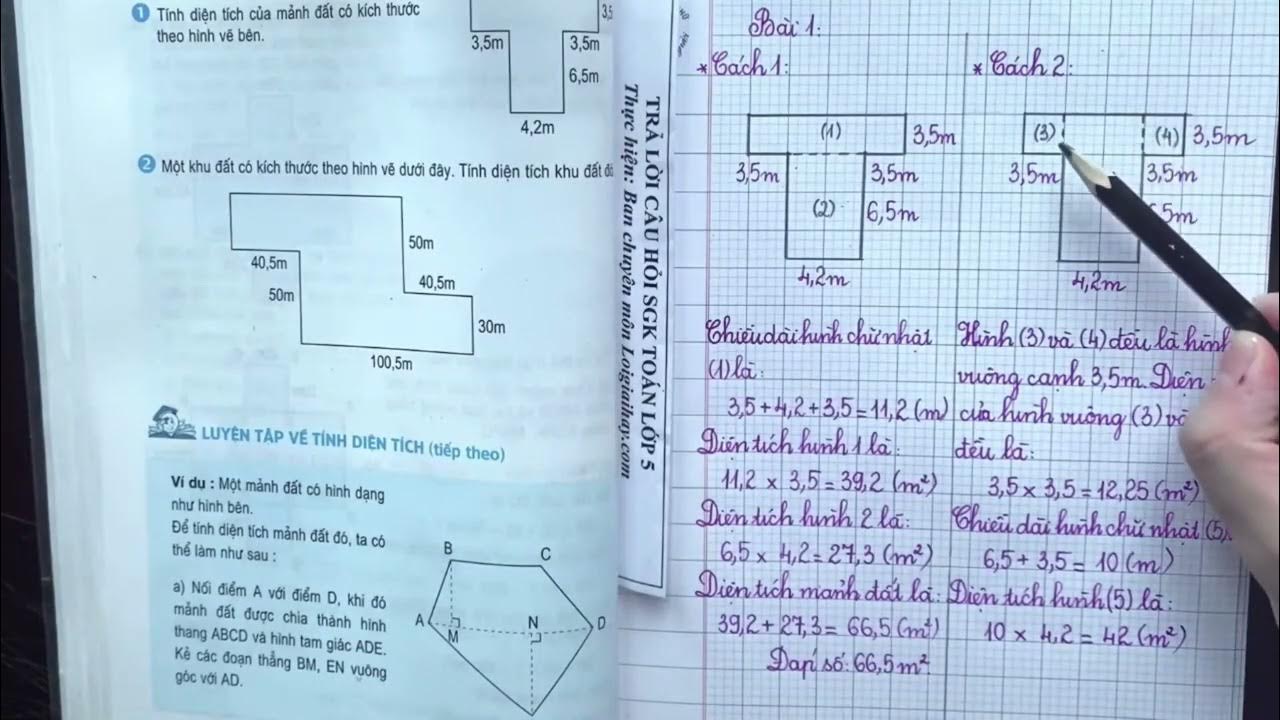 1 Tính diện tích của mảnh đất có kích thước
theo hình vẽ bên.
3,5m
3,5m
6,5m
4,2m
2 Một khu đất có kích thước theo hình vẽ dưới đây. Tính diện tích khu đất
50m
40,5m
40,5m
50m
30m
100,5m
LUYỆN TẬP VỀ TÍNH DIỆN TÍCH (tiếp theo)
Ví dụ : Một mảnh đất có hình dạng
như hình bên.
Để tính diện tích mảnh đất đó, ta có
thể làm như sau :
a) Nối điểm A với điểm D, khi đó
mảnh đất được chia thành hình
thang ABCD và hình tam giác ADE.
Kẻ các đoạn thẳng BM, EN vuông
góc với AD.
B
C
A
M
N
D
TRẢ LỜI CÂU HỎI SGK TOÁN LỚP 5
Thực hiện: Ban chuyên môn Loigiaihay.com
Bài 1:
* Cách 1:
(1)
3,5m
3,5m
3,5m
(2)
6,5m
4,2m
Chiều dài hình chữ nhật
(1) là:
3,5 + 4,2 + 3,5 = 11,2 (m)
Diện tích hình 1 là:
11,2 × 3,5 = 39,2 (m²)
Diện tích hình 2 là:
6,5 × 4,2 = 27,3 (m²)
Diện tích mảnh đất là:
39,2 + 27,3 = 66,5 (m²)
Đáp số: 66,5 m².
* Cách 2:
(3)
(4)
3,5m
3,5m
3,5m
5m
4,2m
Hình (3) và (4) đều là hình
vuông cạnh 3,5m. Diện
của hình vuông (3) và
đều là:
3,5 × 3,5 = 12,25 (m²)
Chiều dài hình chữ nhật (5)
6,5 + 3,5 = 10 (m)
Diện tích hình (5) là:
10 × 4,2 = 42 (m²)